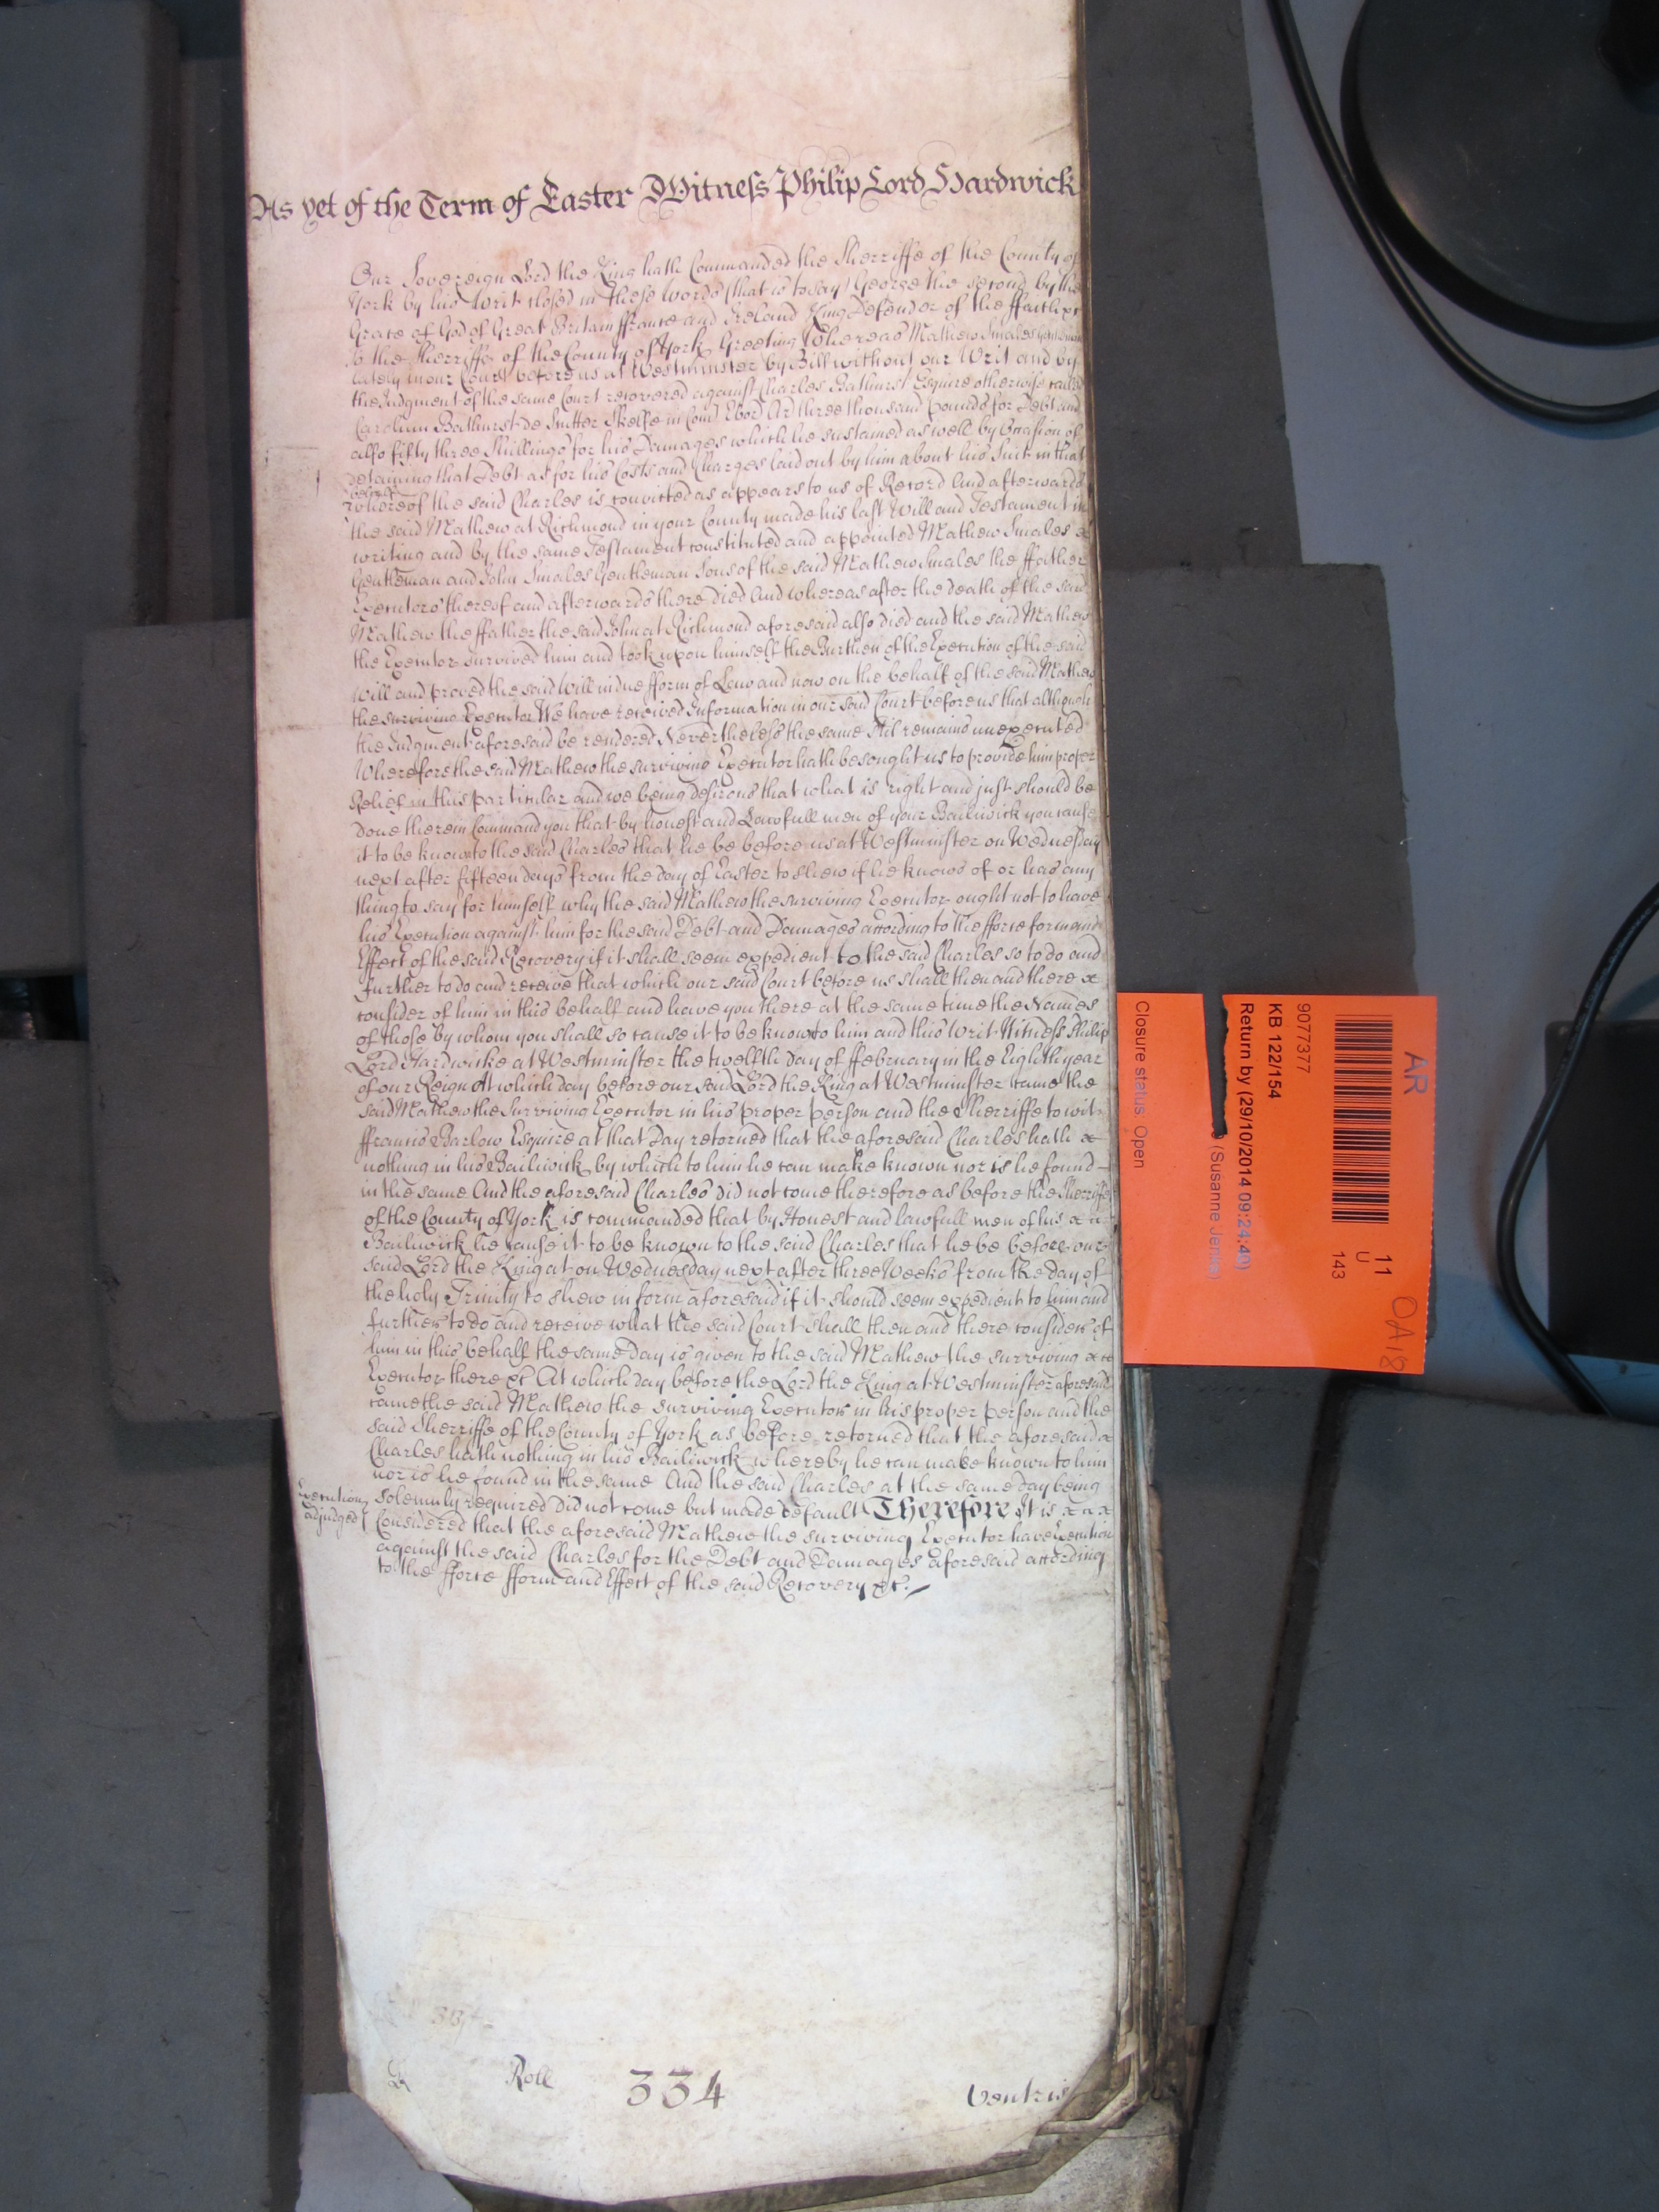 As yet of the Term of Easter Witness Philip Lord Hardwick
Our Sovereign Lord the King hath Commanded the Sherriffe of the County of
York by his Writ closed in these words (that is to say) George the second by the
Grace of God of Great Britain ffrance and Ireland King Defender of the ffaith &c
To the Sherriffe of the County of York Greeting Whereas Mathew Smales Gentleman
lately in our Court before us at Westminster by Bill without our Writ and by
the Judgment of the same Court recovered against Charles Bathurst Esquire otherwise called
Carolum Bathurst de Scutter Skelfe in Com Ebor Ar three thousand pounds for Debt and
also fifty three Shillings for his Damages which he sustained as well by Occasion of
detaining that Debt as for his Costs and Charges laid out by him about his Suit in that
behalf
whereof the said Charles is convicted as appears to us of Record And afterwards
the said Mathew at Richmond in your County made his last Will and Testament in
writing and by the same Testament constituted and appointed Mathew Smales x
Gentleman and John Smales Gentleman Sons of the said Mathew Smales the ffather
Executors thereof and afterwards there died And whereas after the death of the said
Mathew the ffather the said John at Richmond aforesaid also died and the said Mathew
the Executor survived him and took upon himself the Burthen of the Execution of the said
Will and proved the said Will in due fform of Law and now on the behalf of the said Mathew
the surviving Executor We have received Information in our said Court before us that although
the Judgment aforesaid be rendered Nevertheless the same Stil remains unexecuted
Wherefore the said Mathew the surviving Executor hath besought us to provide him proper
Relief in this particular and we being desirous that what is right and just should be
done therein Command you that by honest and Lawfull men of your Bailiwick you cause
it to be known to the said Charles that he be before us at Westminster on Wednesday
next after fifteen days from the day of Easter to shew if he knows of or has any
thing to say for himself why the said Mathew the surviving Executor ought not to have
his Execution against him for the said Debt and Damages according to the fforce form and
Effect of the said Recovery if it shall seem expedient to the said Charles so to do and
further to do and receive that which our said Court before us shall then and there x
consider of him in this behalf and have you there at the same time the Names
of those by whom you shall so cause it to be known to him and this Writ Witness Philip
Lord Hardwicke at Westminster the twelfth day of ffebruary in the Eighth year
of our Reign At which day before our said Lord the King at Westminster came the
said Mathew the Surviving Executor in his proper person and the Sherriffe to wit
ffrancis Barlow Esquire at that Day retorned that the aforesaid Charles hath x
nothing in his Bailiwick by which to him he can make known nor is he found
in the same And the aforesaid Charles did not come therefore as before the Sherriffe
of the County of York is commanded that by Honest and lawfull men of his x x
Bailiwick he cause it to be known to the said Charles that he be before our
said Lord the King at on Wednesday next after three Weeks from the day of
the holy Trinity to shew in form aforesaid if it should seem expedient to him and
further to do and receive what the said Court shall then and there consider of
him in this behalf the same day is given to the said Mathew the surviving x x
Executor there &c At which day before the Lord the King at Westminster aforesaid
came the said Mathew the surviving Executor in his proper person and the
said Sherriffe of the County of York as before retorned that the aforesaid x
Charles hath nothing in his Bailiwick whereby he can make known to him
nor is he found in the same And the said Charles at the same day being
solemnly required did not come but made default Therefore It is x x x
Execution
adjudged
Considered that the aforesaid Mathew the surviving Executor have Execution
against the said Charles for the Debt and Damages aforesaid according
to the fforce fform and Effect of the said Recovery &c.
Roll 334 Ventris
AR
11
U
143
OA18
9077377
KB 122/154
Return by (29/10/2014 09:24:40)
Closure status: Open